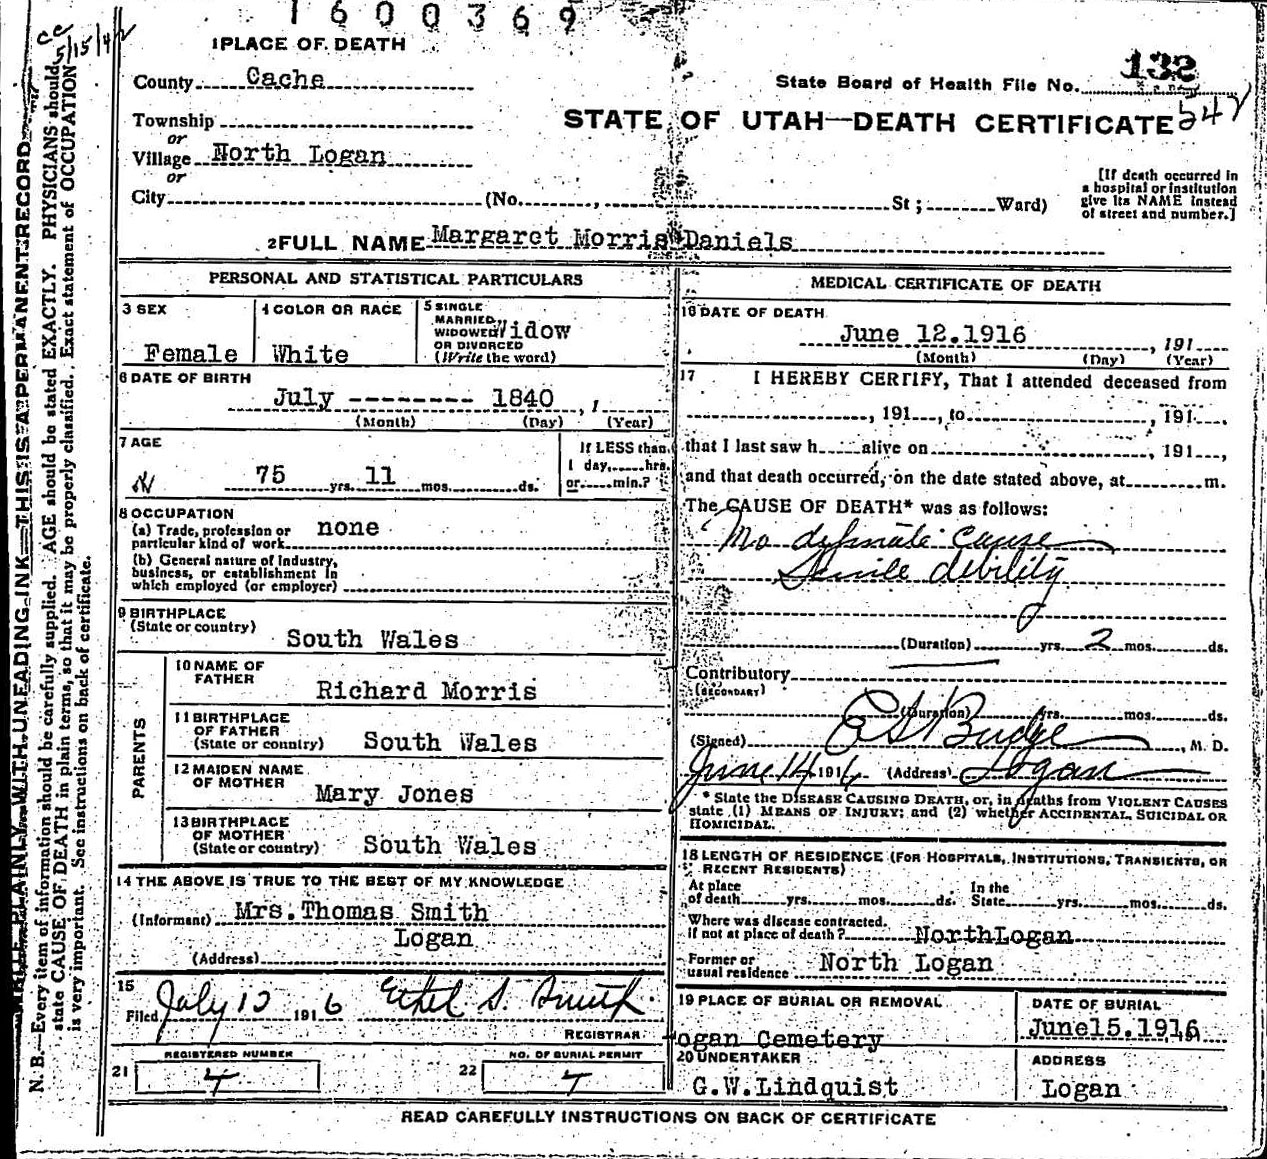 1600369
cc 5/15/42
1 PLACE OF DEATH
County Cache
State Board of Health File No. 132
Township
or
Village North Logan
or
STATE OF UTAH—DEATH CERTIFICATE 547
City (No. , St ; Ward)
[If death occurred in
a hospital or institution
give its NAME instead
of street and number.]
2 FULL NAME Margaret Morris Daniels
PERSONAL AND STATISTICAL PARTICULARS
3 SEX
Female
4 COLOR OR RACE
White
5 SINGLE
MARRIED,
WIDOWED
OR DIVORCED
(Write the word)
Widow
6 DATE OF BIRTH
July -------- 1840 , 1
(Month) (Day) (Year)
7 AGE
75 yrs. 11 mos. ds.
If LESS than
1 day, hrs.
or min.?
8 OCCUPATION
(a) Trade, profession or
particular kind of work none
(b) General nature of Industry,
business, or establishment in
which employed (or employer)
9 BIRTHPLACE
(State or country) South Wales
PARENTS
10 NAME OF
FATHER Richard Morris
11 BIRTHPLACE
OF FATHER
(State or country) South Wales
12 MAIDEN NAME
OF MOTHER Mary Jones
13 BIRTHPLACE
OF MOTHER
(State or country) South Wales
14 THE ABOVE IS TRUE TO THE BEST OF MY KNOWLEDGE
(Informant) Mrs. Thomas Smith
Logan
(Address)
15
Filed July 12 1916 Ethel S. Smith
REGISTRAR
REGISTERED NUMBER
21 4
NO. OF BURIAL PERMIT
22 7
MEDICAL CERTIFICATE OF DEATH
16 DATE OF DEATH
June 12.1916 , 191
(Month) (Day) (Year)
17 I HEREBY CERTIFY, That I attended deceased from
, 191 , to , 191 ,
that I last saw h alive on , 191 ,
and that death occurred, on the date stated above, at m.
The CAUSE OF DEATH* was as follows:
No definite cause
Senile debility
(Duration) yrs. 2 mos. ds.
Contributory
(SECONDARY)
(Duration) yrs. mos. ds.
(Signed) Budge , M. D.
June 14 1916 (Address) Logan
* State the DISEASE CAUSING DEATH, or, in deaths from VIOLENT CAUSES
state (1) MEANS OF INJURY; and (2) whether ACCIDENTAL, SUICIDAL OR
HOMICIDAL.
18 LENGTH OF RESIDENCE (FOR HOSPITALS, INSTITUTIONS, TRANSIENTS, OR
RECENT RESIDENTS)
At place
of death yrs. mos. ds.
In the
State yrs. mos. ds.
Where was disease contracted.
if not at place of death? NorthLogan
Former or
usual residence North Logan
19 PLACE OF BURIAL OR REMOVAL
ogan Cemetery
DATE OF BURIAL
June15.1916, 191
20 UNDERTAKER
G.W.Lindquist
ADDRESS
Logan
READ CAREFULLY INSTRUCTIONS ON BACK OF CERTIFICATE
PLAINLY WITH UNFADING INK—THIS IS A PERMANENT RECORD
N. B.—Every item of information should be carefully supplied. AGE should be stated EXACTLY. PHYSICIANS should
state CAUSE OF DEATH in plain terms, so that it may be properly classified. Exact statement of OCCUPATION
is very important. See instructions on back of certificate.